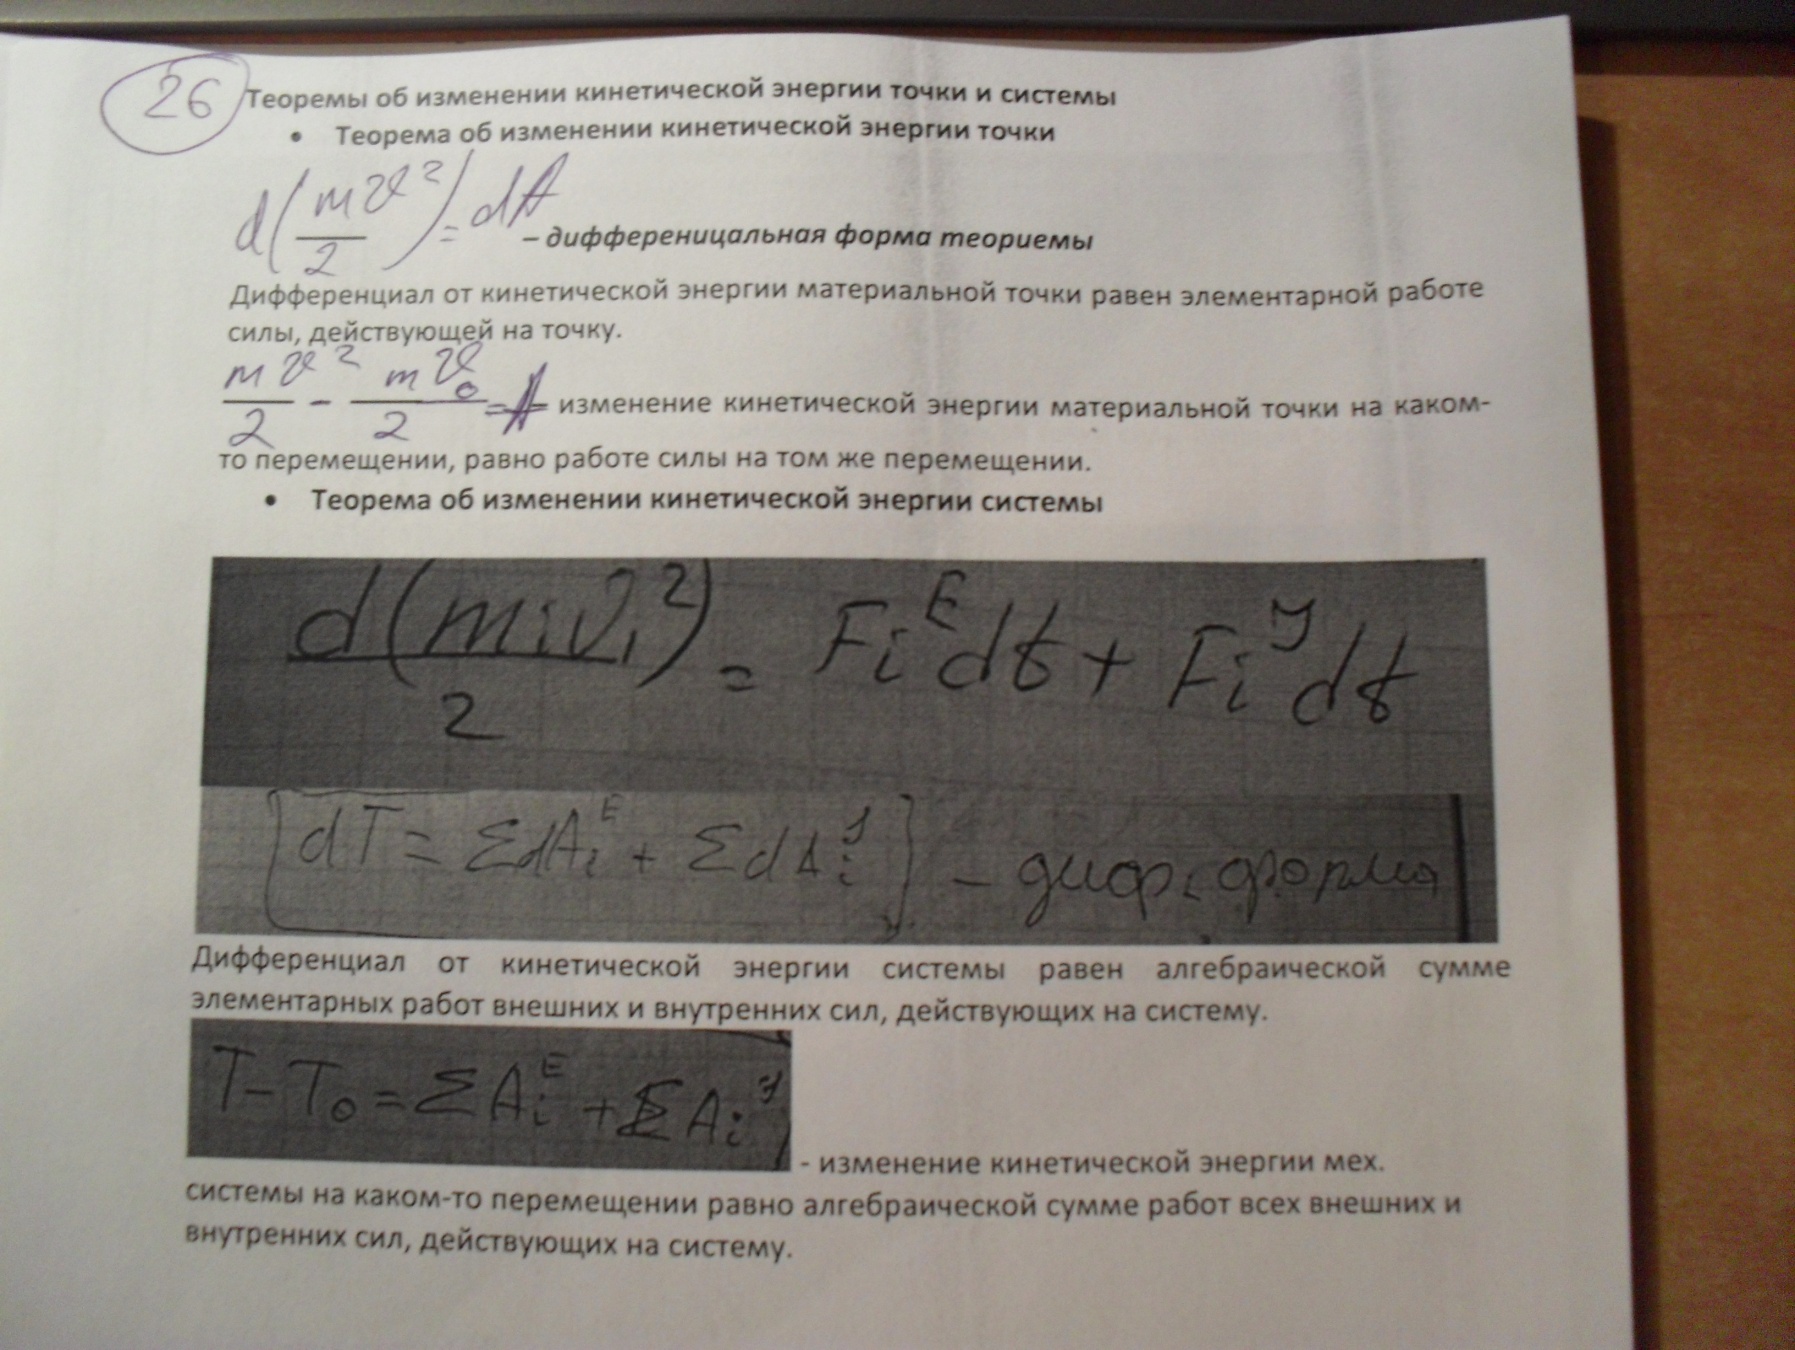 26 Теоремы об изменении кинетической энергии точки и системы
• Теорема об изменении кинетической энергии точки
d(mv²/2) = dA
– дифференицальная форма теориемы
Дифференциал от кинетической энергии материальной точки равен элементарной работе
силы, действующей на точку.
mv²/2 - mv₀/2 = A изменение кинетической энергии материальной точки на каком-
то перемещении, равно работе силы на том же перемещении.
• Теорема об изменении кинетической энергии системы
d(mᵢvᵢ²)/2 = Fᵢᴱdt + Fᵢᴶdt
[dT = ΣdAᵢᴱ + ΣdAᵢᴶ] – диф. форма
Дифференциал от кинетической энергии системы равен алгебраической сумме
элементарных работ внешних и внутренних сил, действующих на систему.
T-T₀ = ΣAᵢᴱ + ΣAᵢᴶ
- изменение кинетической энергии мех.
системы на каком-то перемещении равно алгебраической сумме работ всех внешних и
внутренних сил, действующих на систему.